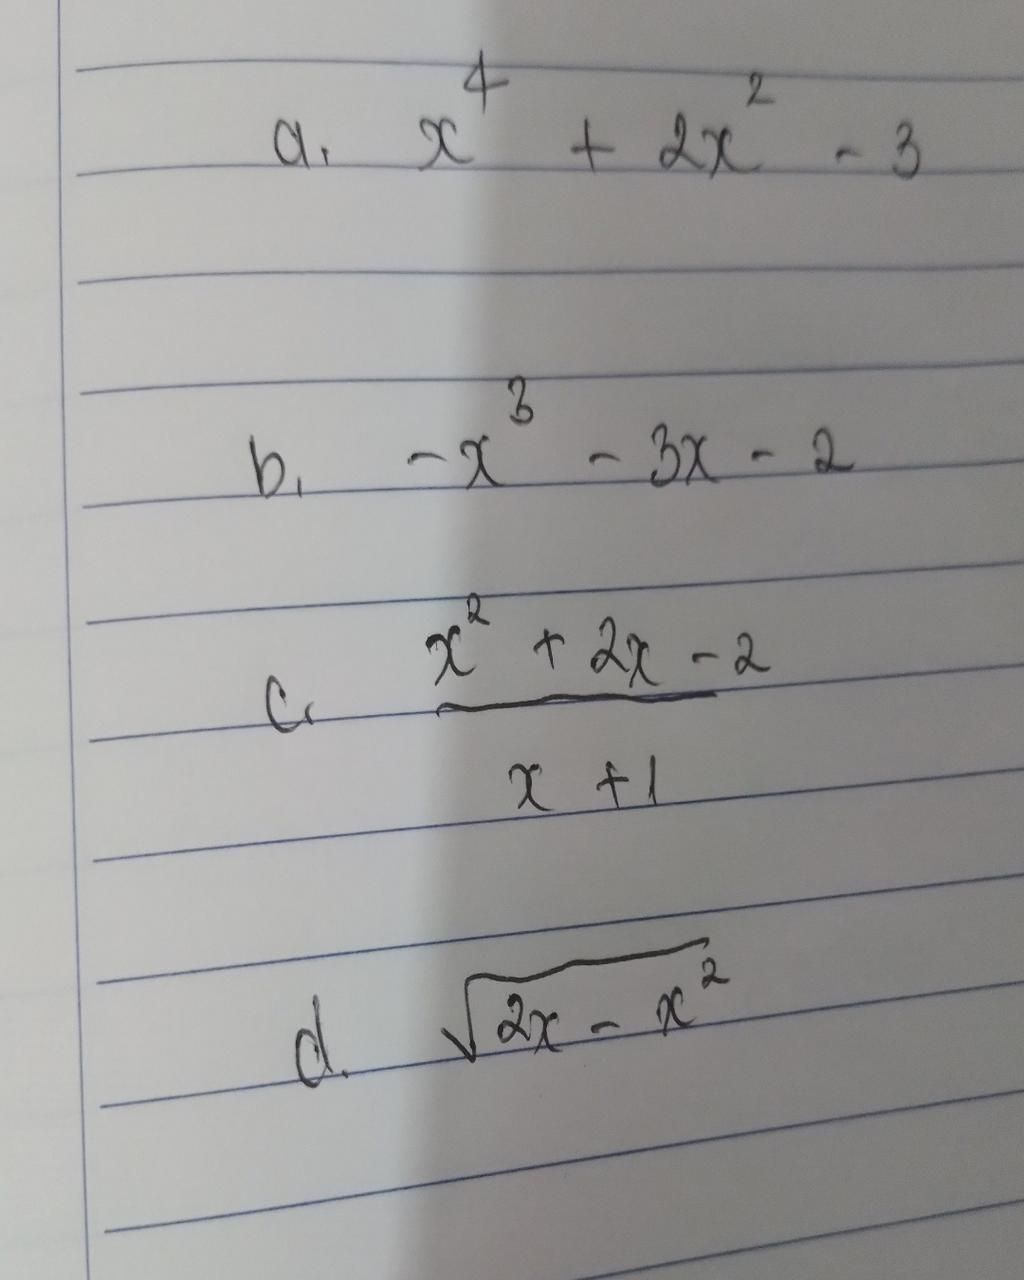 a. x⁴ + 2x² - 3
b. -x³ - 3x - 2
c. (x² + 2x - 2)/(x + 1)
d. √(2x - x²)